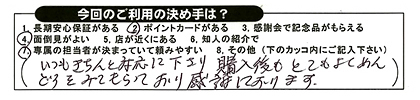 今回のご利用の決め手は?
1. 長期安心保証がある ②ポイントカードがある 3. 感謝会で記念品がもらえる
④面倒見がよい 5. 店が近くにある 6. 知人の紹介で
⑦専属の担当者が決まっていて頼みやすい 8. その他(下のカッコ内にご記入下さい)
(いつもきちんと対応に下さり 購入後も とても
みてもらって おり 感謝しております。)